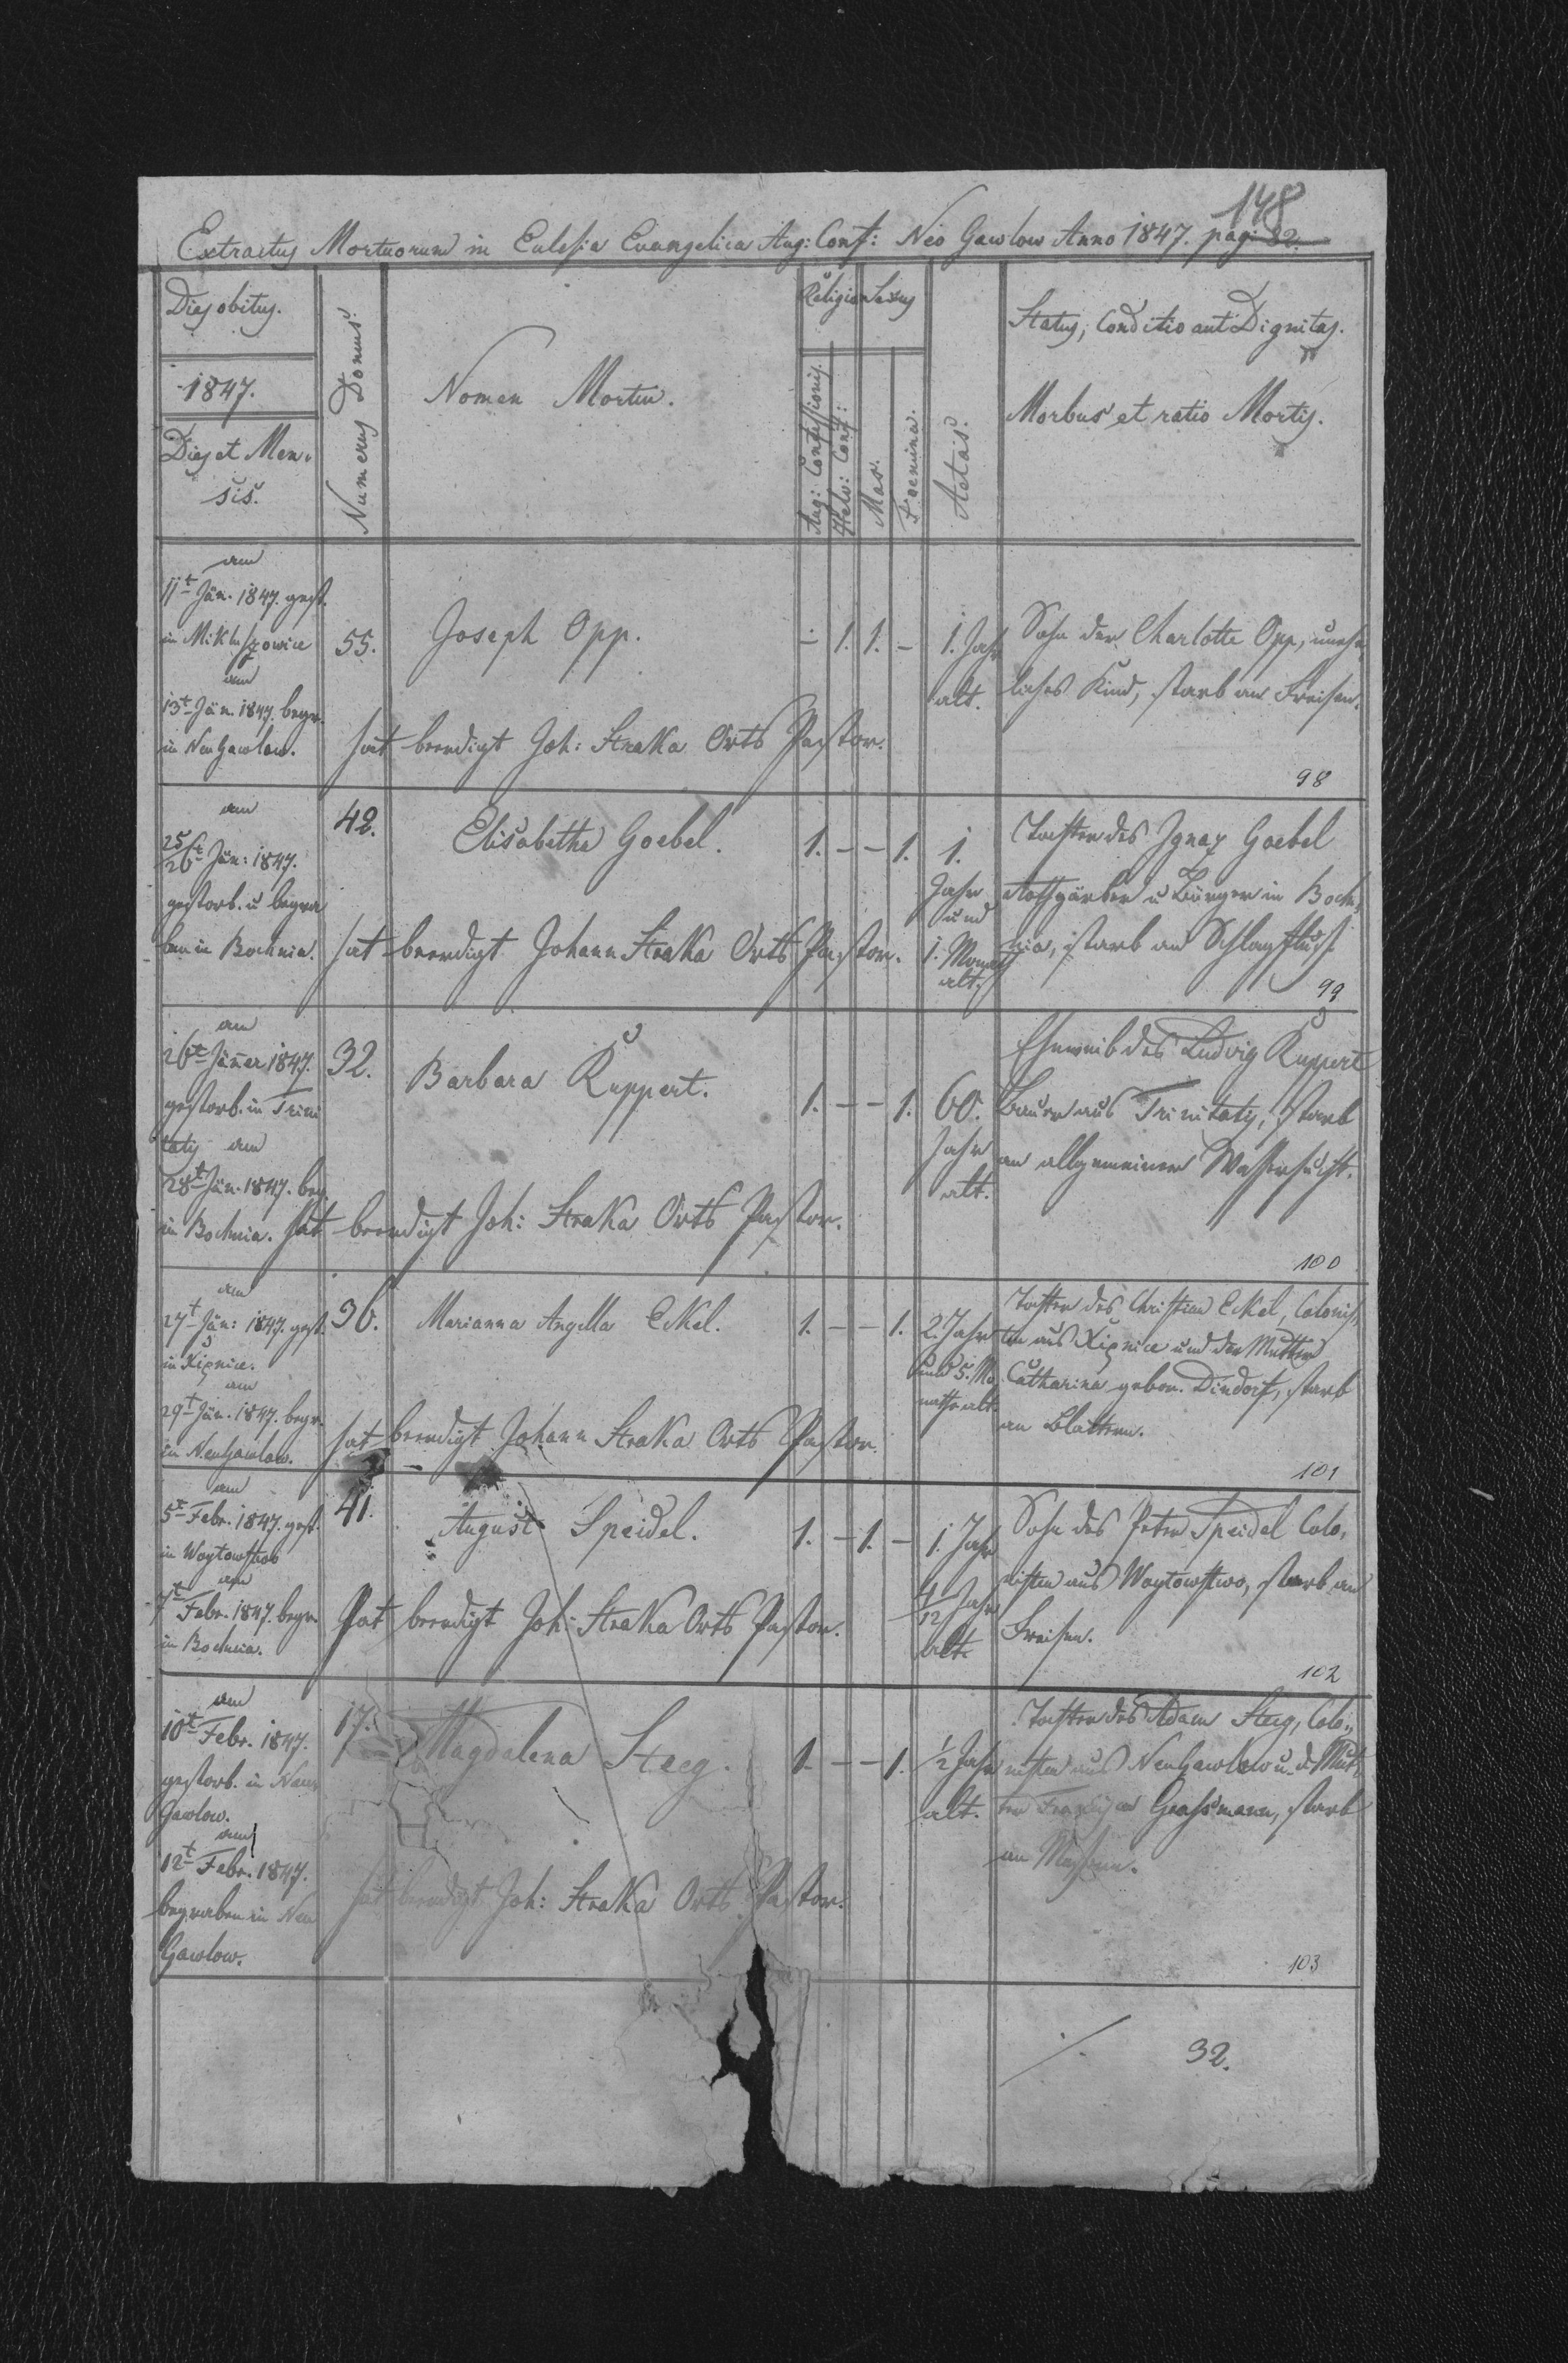 148
Extractus Mortuorum in Eclesia Evangelica Aug: Conf: Neo Gawlow Anno 1847. pag: 82.
Dies obitus.
1847.
Dies et Men-
sis.
Numerus Domus.
Nomen Mortui.
Religio
Sexus
Aug: Confessionis.
Helv: Conf:
Mas.
Foemina.
Aetas.
Status, Conditio aut Dignitas.
Morbus et ratio Mortis.
am
11t Jän. 1847. gest.
in Mikluszowice
am
13t Jän. 1847. begr.
in NeuGawlow.
55.
Joseph Opp.
- 1. 1. -
1. Jahr
alt.
Sohn der Charlotte Opp, unehe,
liches Kind, starb an Freisen.
hat beerdigt Joh: Straka Orts Pastor.
98
am
25/26t Jän: 1847.
gestorb. u begra
ben in Bochnia.
42.
Elisabetha Goebel.
1. - - 1.
1.
Jahr
und
1. Monath
alt.
Tochter des Ignaz Goebel
Rothgärber u Bürger in Boch,
nia, starb an Schlagfluss.
hat beerdigt Johann Straka Orts Pastor.
99
am
26t Jäner 1847.
gestorb. in Trini
tatis am
28t Jän. 1847. beg.
in Bochnia.
32.
Barbara Ruppert.
1. - - 1.
60.
Jahr
alt.
Eheweib des Ludvig Ruppert
Bauer aus Trinitatis, starb
an allgemeiner Wassersucht.
hat beerdigt Joh: Straka Orts Pastor.
100
am
27t Jän: 1847. gest.
in Xiąznice.
am
29t Jän. 1847. begr.
in NeuGawlow.
36.
Marianna Angella Ekel.
1. - - 1.
2. Jahr
und 5. Mo
nathe alt.
Tochter des Christian Ekel, Colonis,
ten aus Xiąznice und der Mutter
Catharina gebor. Dindorf, starb
an Blattern.
hat beerdigt Johann Straka Orts Pastor.
101
am
5t Febr. 1847. gest.
in Woytowstwo
am
7t Febr. 1847. begr.
in Bochnia.
41.
August Speidel.
1. - 1. -
1. Jahr
4/12 Jahr
alt.
Sohn des Peter Speidel Colo,
nisten aus Woytowstwo, starb an
Freisen.
hat beerdigt Joh: Straka Orts Pastor.
102
am
10t Febr. 1847.
gestorb. in Neu
Gawlow.
am
12t Febr. 1847.
begraben in Neu
Gawlow.
17.
Magdalena Steeg.
1. - - 1.
1/2 Jahr
alt.
Tochter des Adam Steeg, Colo,,
nisten aus NeuGawlow u. d. Mut,
ter Grassmann, starb
an Masern.
hat beerdigt Joh: Straka Orts Pastor.
103
./. 32.